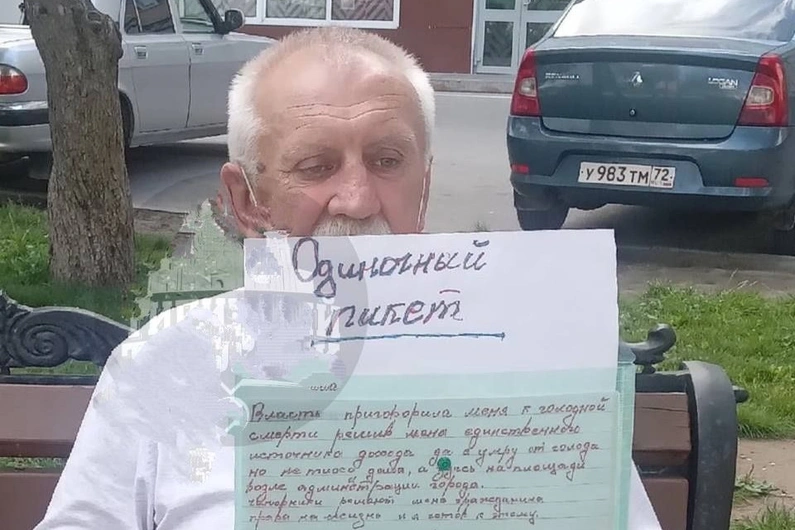 RENAULT
LOGAN
У 983 ТМ 72
Одиночный
пикет
Власть приговорила меня к голодной
смерти решив меня единственного
источника дохода да я умру от голода
но не тихо дома, а здесь на площади
возле администрации города.
Чиновники решают меня гражданина
права на жизнь и я готов к этому.